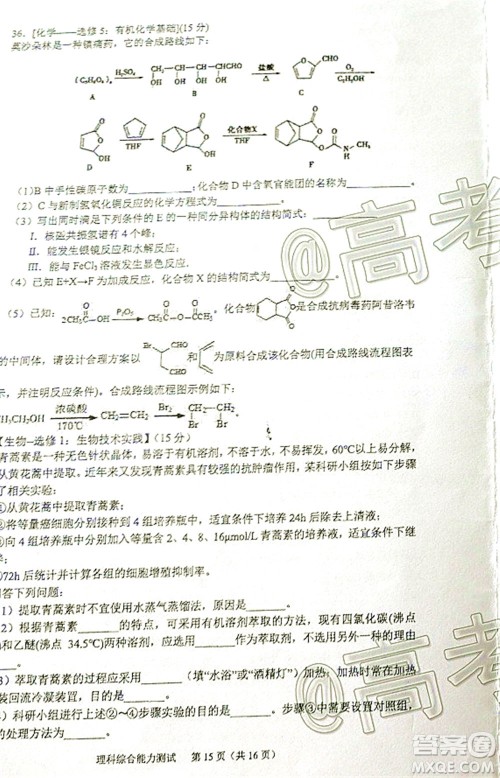 36. [化学——选修5：有机化学基础](15分)
莫沙朵林是一种镇痛药，它的合成路线如下：
(C₅H₈O₄)ₙ H₂SO₄ 盐酸 CHO O₂
OH OH OH OH C₂H₅OH
A B C
THF 化合物X THF
D E F
(1)B中手性碳原子数为________；化合物D中含氧官能团的名称为________。
(2)C与新制氢氧化铜反应的化学方程式为________。
(3)写出同时满足下列条件的E的一种同分异构体的结构简式：________
I. 核磁共振氢谱有4个峰；
II. 能发生银镜反应和水解反应；
III. 能与FeCl₃溶液发生显色反应。
(4)已知E+X→F为加成反应，化合物X的结构简式为________。
(5)已知：2CH₃C-OH P₂O₅ CH₃C-O-CCH₃。化合物 是合成抗病毒药阿昔洛韦
的中间体，请设计合理方案以 Br CHO CHO 和 为原料合成该化合物(用合成路线流程图表
示，并注明反应条件)。合成路线流程图示例如下：
CH₃CH₂OH 浓硫酸 170℃ CH₂=CH₂ Br₂ Br Br
【生物—选修1：生物技术实践】(15分)
青蒿素是一种无色针状晶体，易溶于有机溶剂，不溶于水，不易挥发，60℃以上易分
从黄花蒿中提取。近年来又发现了青蒿素类具有较强的抗肿瘤作用，某科研小组按以下步骤
了相关实验：
①从黄花蒿中提取青蒿素；
②将等量癌细胞分别接种到4组培养瓶中，适宜条件下培养24h后弃上清液；
③4组培养瓶中分别加入等量含2、4、8、16μmol/L青蒿素的培养液，适宜条件下培养；
④72h后统计并计算各组的癌细胞增殖抑制率。
回答下列问题：
(1) 提取青蒿素时未采用水蒸气蒸馏法，原因是________。
(2) 青蒿素的提取可采用有机溶剂萃取的方法，现有四氯化碳(沸点
℃)和乙醚(沸点 34.5℃)两种溶剂，应选用________作为萃取剂，不选另一种的理由
________。
(3) 萃取青蒿素的过程应采用________（填“水浴”或“酒精灯”）加热；加热时，瓶口
装回流冷凝装置，目的是________。
(4) 科研小组进行的②～④步骤中，还需要设置对照组，对照组的
处理方法为________。
理科综合能力测试 第15页（共16页）
@高考